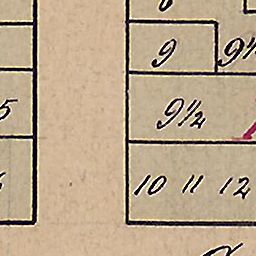 9 9½
5
9½
10 11 12